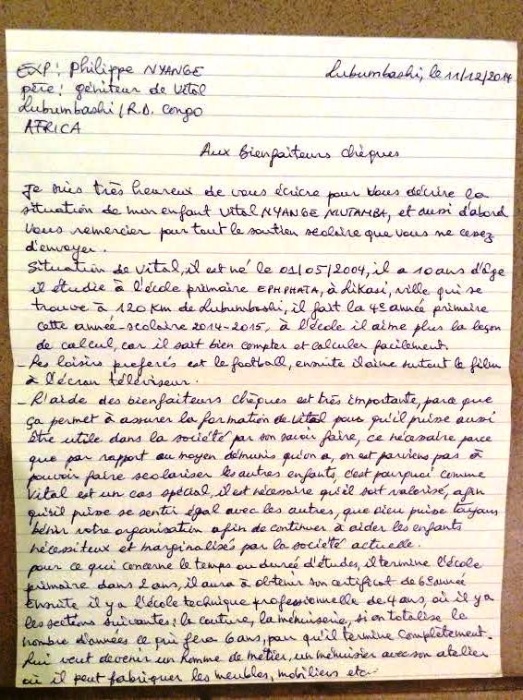 EXP: Philippe NYANGE
père: géniteur de Vital
Lubumbashi/R.D. Congo
AFRICA
Lubumbashi, le 11/12/2014
Aux Bienfaiteurs chèques
Je suis très heureux de vous écrire pour vous décrire la
situation de mon enfant Vital NYANGE MUTAMBA, et aussi d'abord
vous remercier pour tout le soutien scolaire que vous ne cessez
d'envoyer.
Situation de Vital, il est né le 01/05/2004, il a 10 ans d'âge
il étudie à l'école primaire EPHPHATA, à Likasi, ville qui se
trouve à 120 km de Lubumbashi, il fait la 4e année primaire
cette année-scolaire 2014-2015, à l'école il aime plus la leçon
de calcul, car il sait bien compter et calculer facilement.
- Les loisirs preferés est le football, ensuite il aime surtout le film
à l'écran téléviseur.
- L'aide des bienfaiteurs chèques est très importante, parce que
ça permet à assurer la formation de Vital pour qu'il puisse aussi
être utile dans la société par son savoir faire, ce nécessaire, parce
que par rapport au moyen démunis qu'on a, on est parviens pas à
pouvoir faire scolariser les autres enfants, c'est pourquoi comme
Vital est un cas spécial, il est nécessaire qu'il soit valorisé, afin
qu'il puisse se sentir égal avec les autres, que Dieu puisse toujours
bénir votre organisation afin de continuer à aider les enfants
nécessiteux et marginalisés par la société actuelle.
pour ce qui concerne le temps ou durée d'études, il termine l'école
primaire dans 2 ans, il aura à obtenir son certificat de 6e année
Ensuite il y a l'école technique professionnelle de 4 ans, où il y a
les sections suivantes: la couture, la menuiserie, si on totalise le
nombre d'années ce qui fera 6 ans, pour qu'il termine complètement.
Lui veut devenir un homme de métier, un menuisier avec son atelier
où il peut fabriquer les meubles, mobiliers etc.